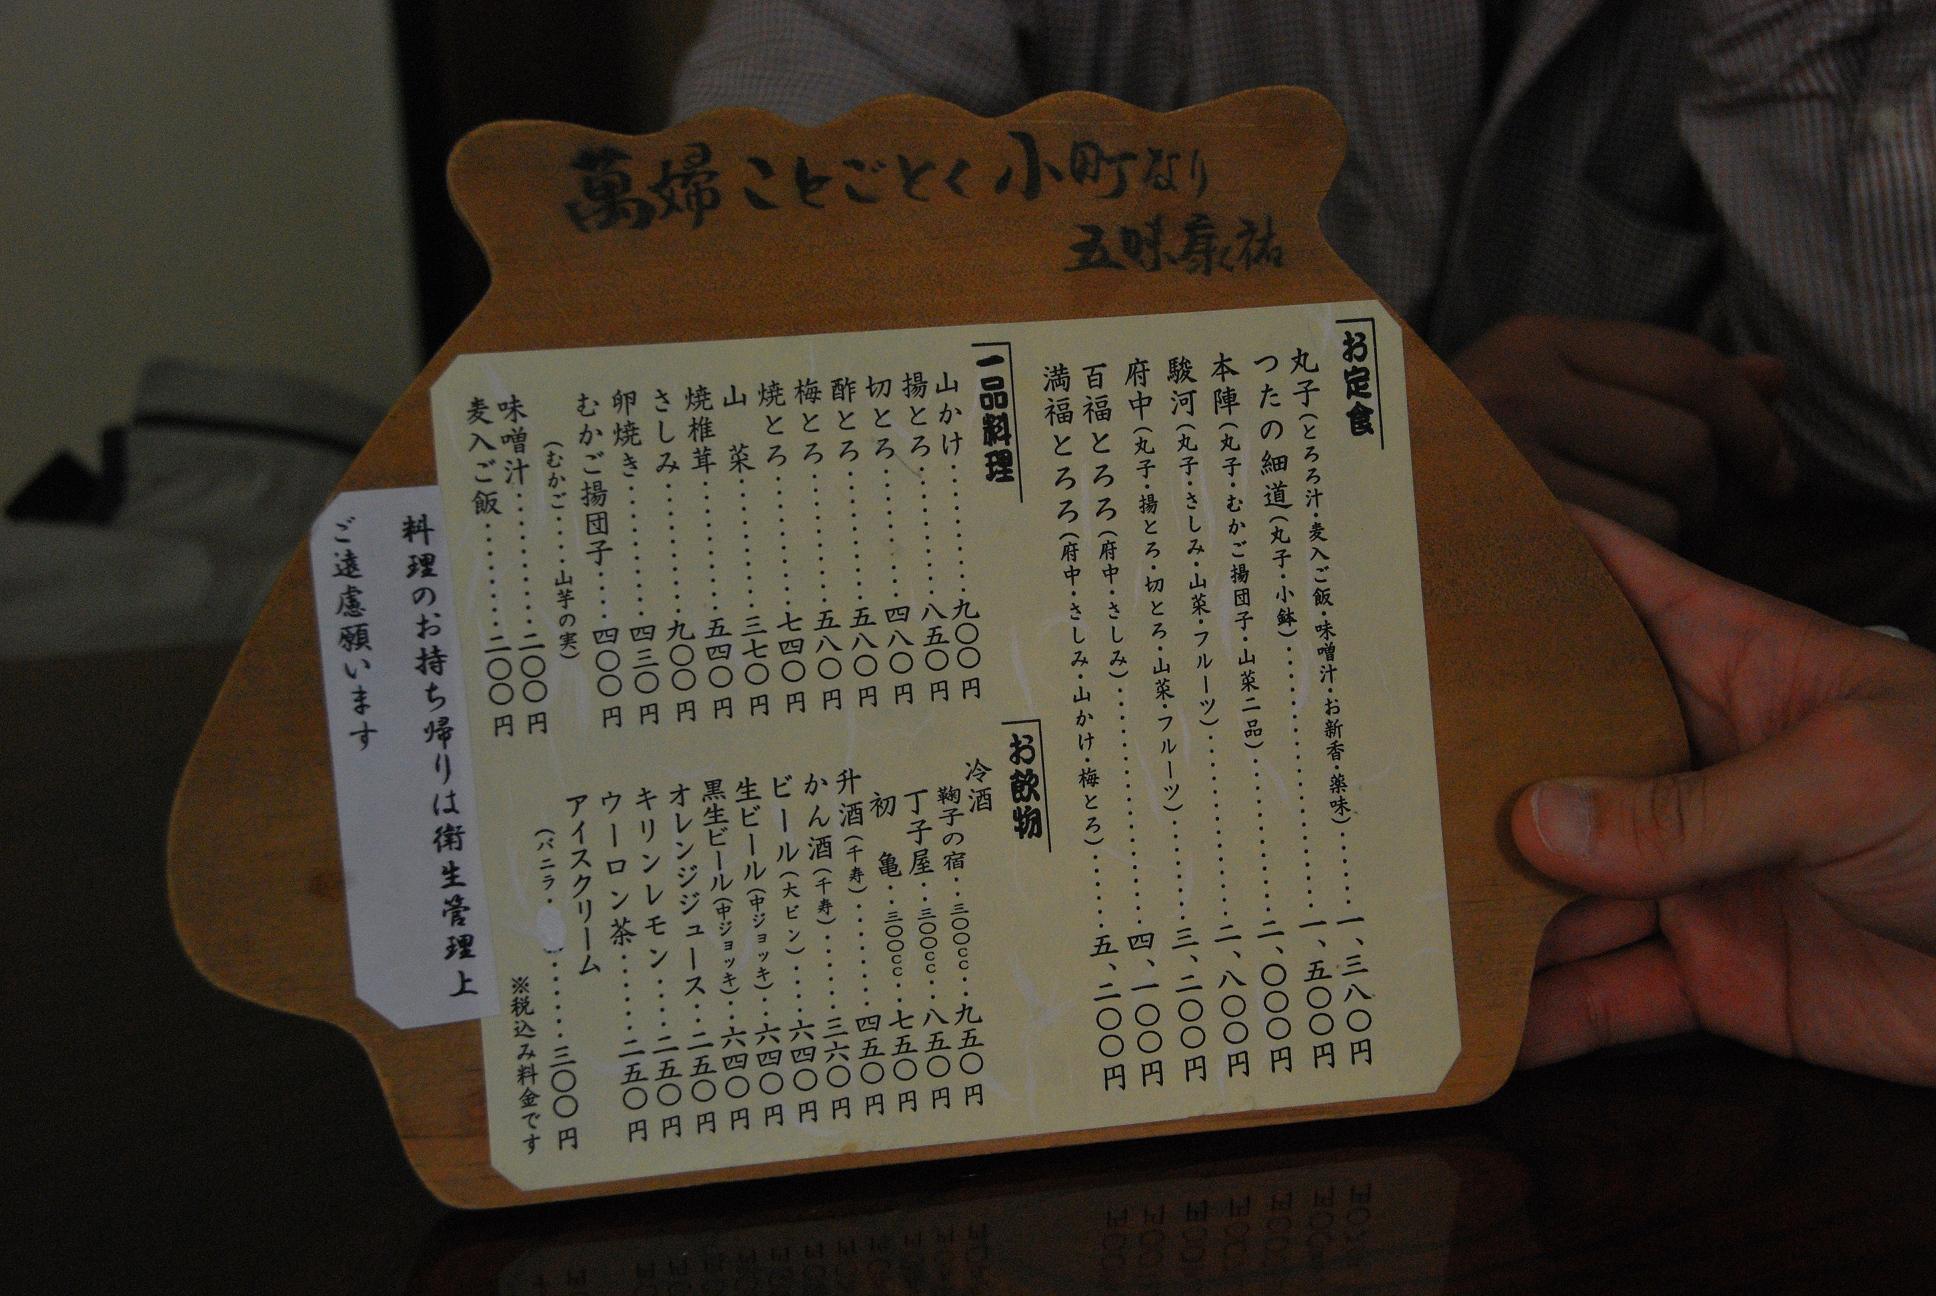 萬婦ことごとく小町なり
五味康祐
お定食
丸子(とろろ汁・麦入ご飯・味噌汁・お新香・薬味)……一、三八〇円
つたの細道(丸子・小鉢)……一、五〇〇円
本陣(丸子・むかご揚団子・山菜二品)……二、〇〇〇円
駿河(丸子・さしみ・山菜・フルーツ)……二、八〇〇円
府中(丸子・揚とろ・切とろ・山菜・フルーツ)……三、二〇〇円
百福とろろ(府中・さしみ)……四、一〇〇円
満福とろろ(府中・さしみ・山かけ・梅とろ)……五、二〇〇円
一品料理
山かけ……九〇〇円
揚とろ……八五〇円
切とろ……四八〇円
酢とろ……五八〇円
梅とろ……五八〇円
焼とろ……七四〇円
山菜……三七〇円
焼椎茸……五四〇円
さしみ……九〇〇円
卵焼き……四三〇円
むかご揚団子……四〇〇円
(むかご……山芋の実)
味噌汁……二〇〇円
麦入ご飯……二〇〇円
お飲物
冷酒
鞠子の宿…三〇〇cc…九五〇円
丁子屋…三〇〇cc…八五〇円
初亀…三〇〇cc…七五〇円
升酒(千寿)……四五〇円
かん酒(千寿)……三六〇円
ビール(大ビン)……六四〇円
生ビール(中ジョッキ)…六四〇円
黒生ビール(中ジョッキ)…六四〇円
オレンジジュース…二五〇円
キリンレモン……二五〇円
ウーロン茶……二五〇円
アイスクリーム
(バニラ・……三〇〇円
※税込み料金です
料理のお持ち帰りは衛生管理上
ご遠慮願います